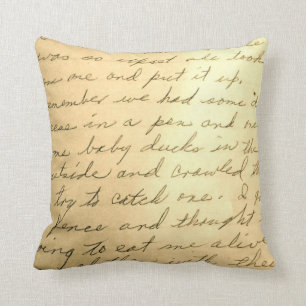 was so upset all took
me and put it up.
remember we had some
in a pen and
me baby ducks in the
outside and crawled
try to catch one. I
fence and thought
going to eat me alive